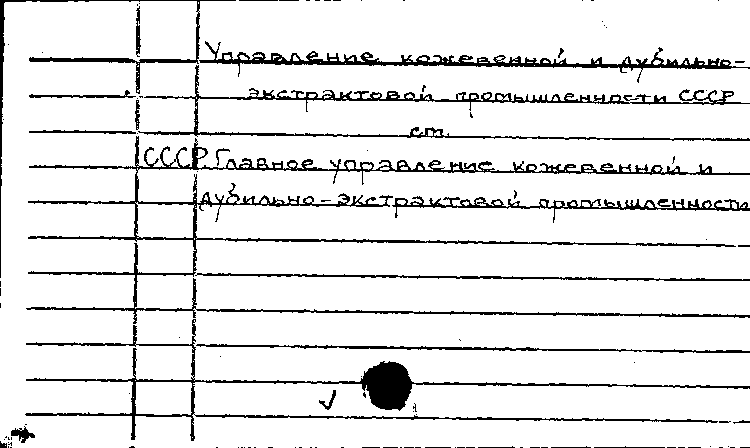 Управление кожевенной и дубильно-
экстрактовой промышленности СССР
см.
СССР. Главное управление кожевенной и
дубильно-экстрактовой промышленности